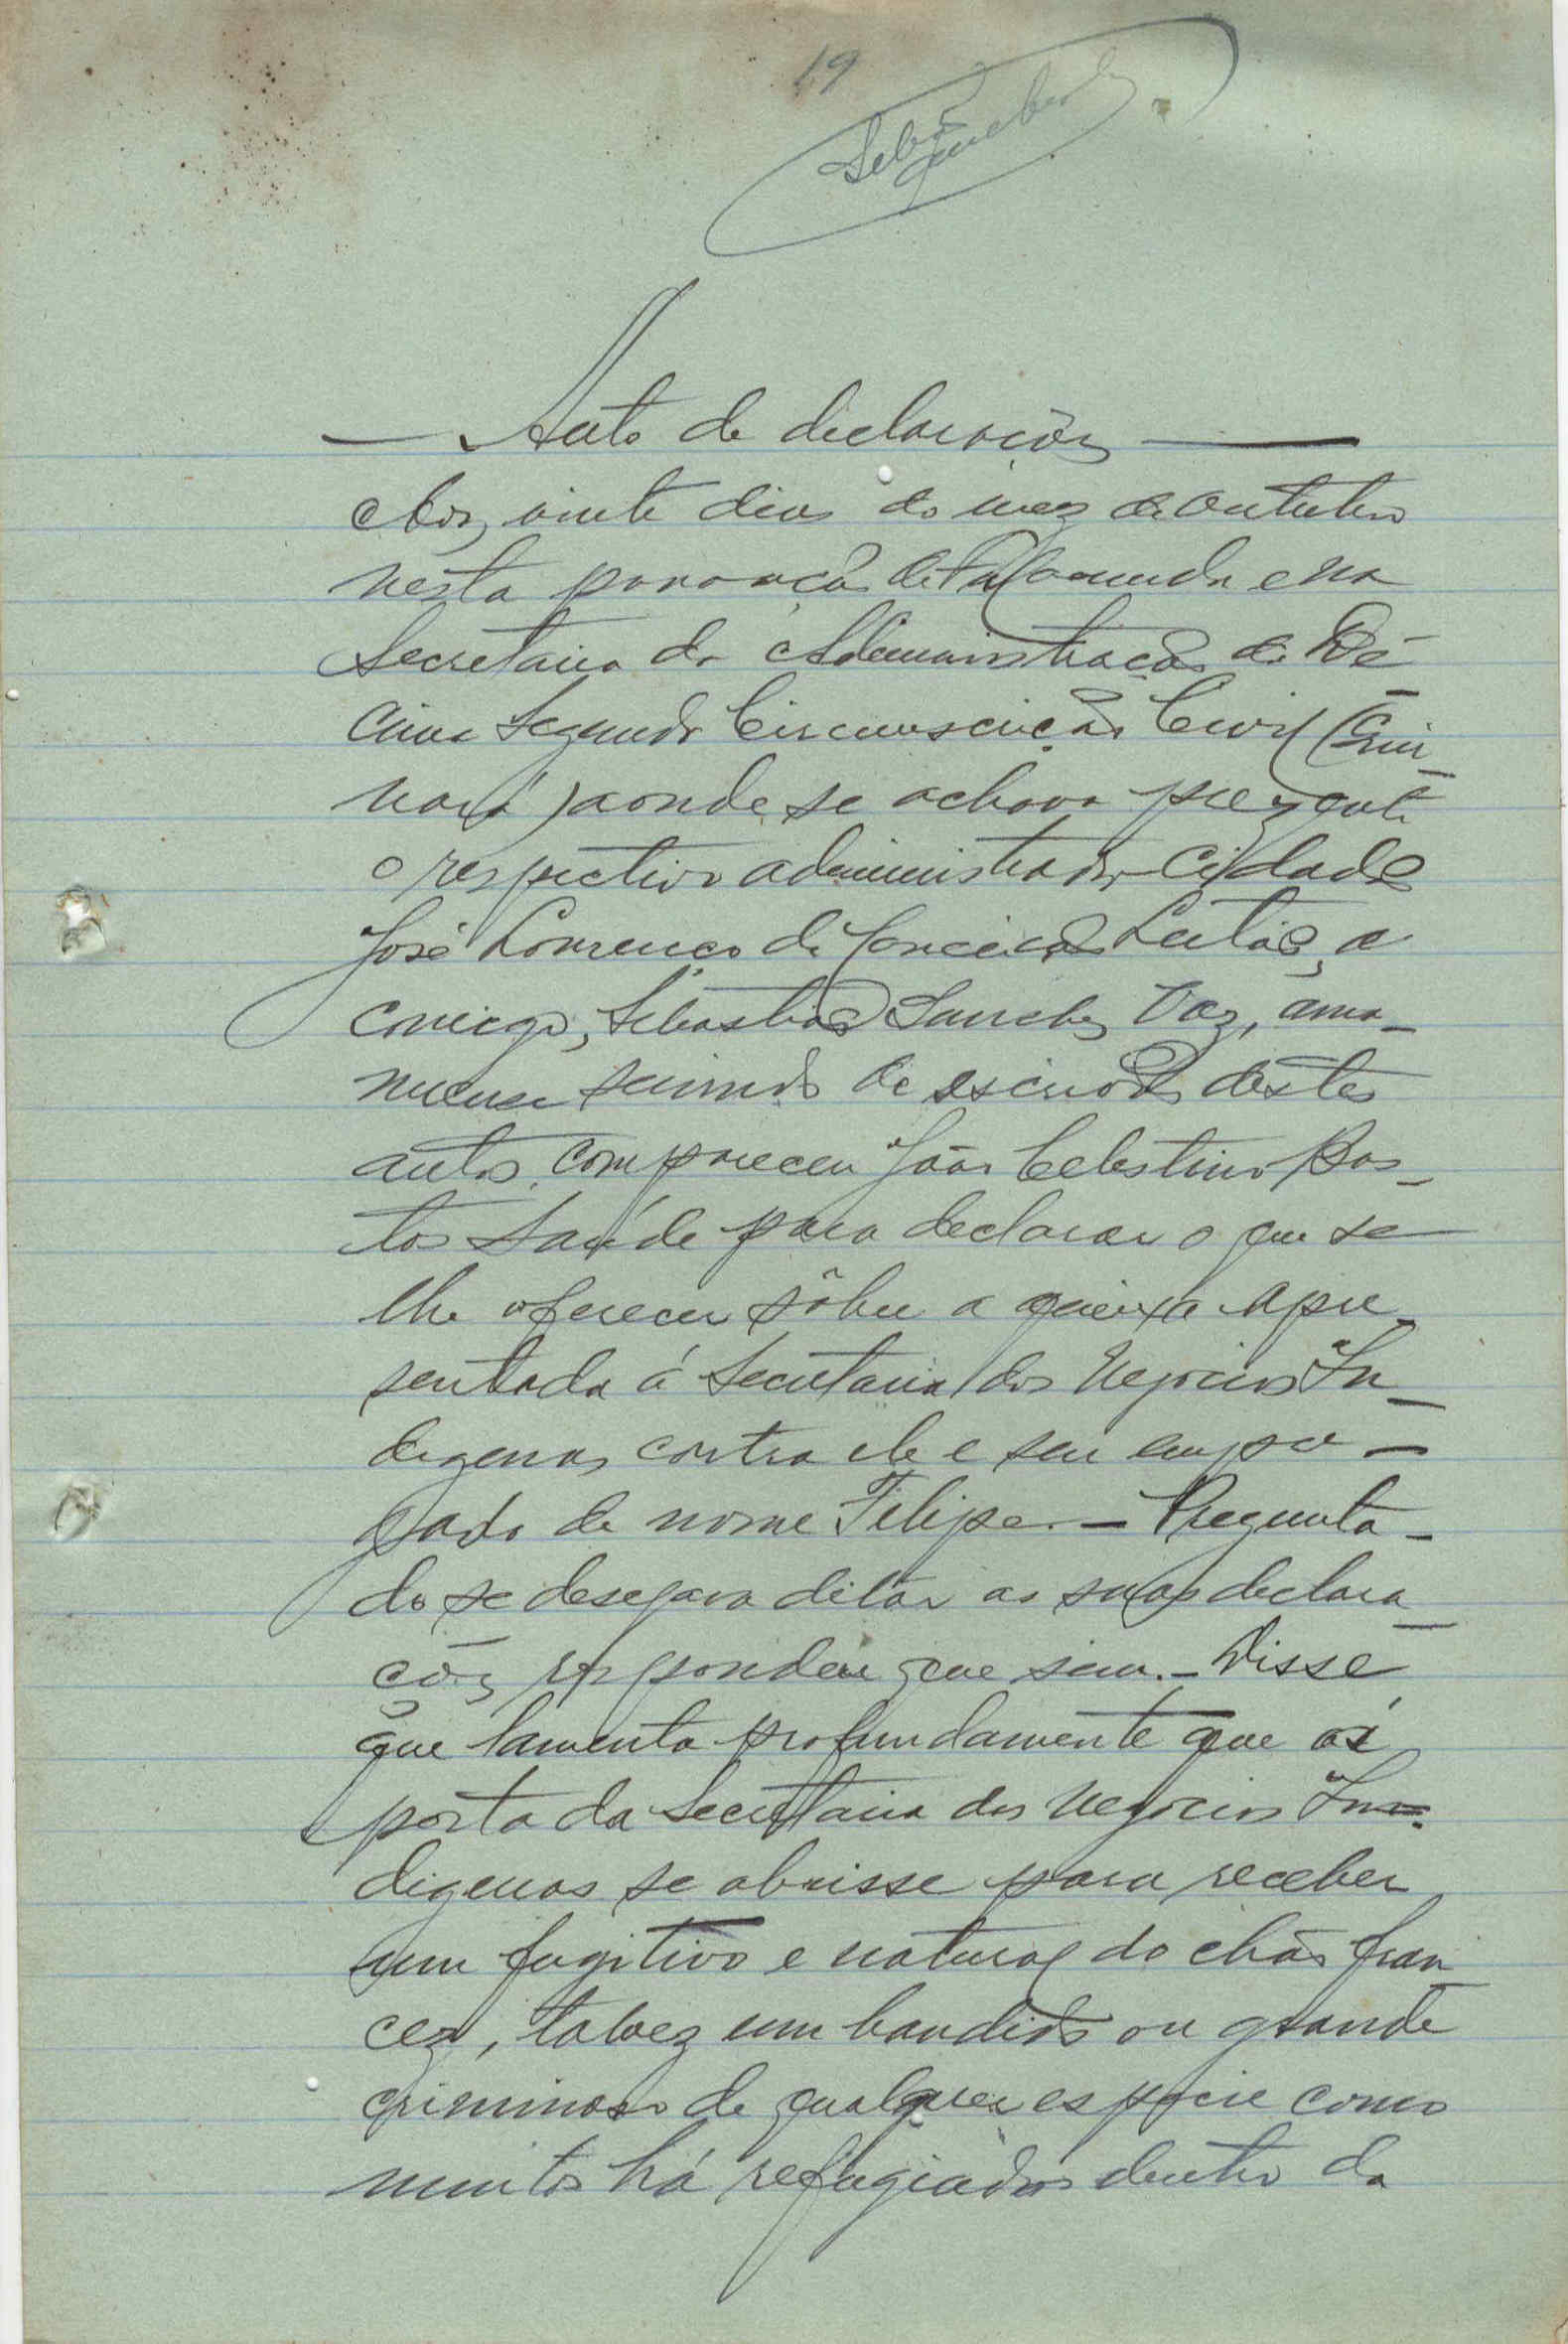 19
— Auto de declarações —
Aos vinte dias do mez de Outubro
nesta povoação de e na
Secretaria da Administração da Dé-
cima Segunda Circumscrição Civil (
) aonde se achava prezente
o respectivo administrador Cidadão
José Lourenço da Conceição Leitão, e
comigo, Sebastião Sanches Vaz, ama-
nuense servindo de escrivão destes
autos, compareceu João Celestino Bas-
tos Saúde para declarar o que se
lhe oferecer sôbre a queixa apre-
sentada á Secretaria dos Negocios In-
digenas contra ele e seu empre-
gado de nome Filipe. — Pregunta-
do se desejava ditar as suas declara-
çóes respondeu que sim. — Disse
que lamenta profundamente que a
porta da Secretaria dos Negocios In-
digenas se abrisse para receber
um fugitivo e natural do chão fran-
cez, talvez um bandido ou grande
criminoso de qualquer especie como
muitos há refugiados dentro da